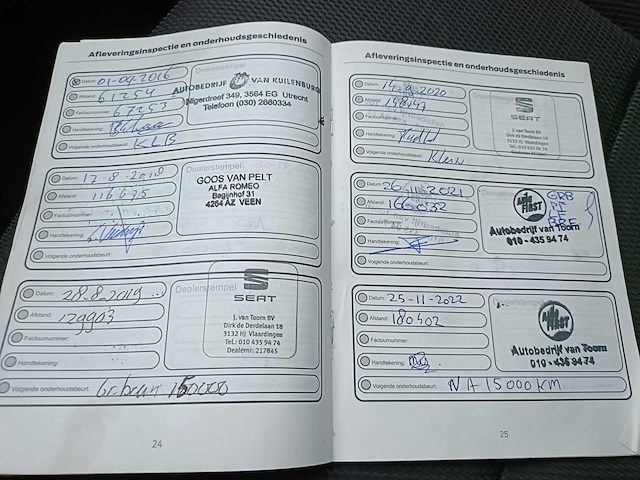 Afleveringsinspectie en onderhoudsgeschiedenis
Datum: 01-04-2016
Dealerstempel:
Afstand: 61254
Factuurnummer: 67253
Handtekening:
Volgende onderhoudsbeurt: KLB
AUTOBEDRIJF VAN KUILENBURG
Nijgerdroef 349, 3564 EG Utrecht
Telefoon (030) 2660334
Datum: 17-8-2018
Dealerstempel:
Afstand: 116675
Factuurnummer:
Handtekening:
Volgende onderhoudsbeurt:
GOOS VAN PELT
ALFA ROMEO
Bagijnhof 31
4264 AZ VEEN
Datum: 28.8.2019
Dealerstempel:
Afstand: 129993
Factuurnummer:
Handtekening:
Volgende onderhoudsbeurt: Gr. beurt 150000
SEAT
J. van Toorn BV
Dirk de Derdelaan 18
3132 HJ Vlaardingen
Tel.: 010 435 94 74
Dealernr: 217845
24
Afleveringsinspectie en onderhoudsgeschiedenis
Datum: 14-9-2020
Afstand: 148147
Factuurnummer:
Handtekening:
Volgende onderhoudsbeurt: Klein
SEAT
J. van Toorn BV
Dirk de Derdelaan 18
Datum: 26-11-2021
Afstand: 166032
Factuurnummer:
Handtekening:
Volgende onderhoudsbeurt:
FIRST
GRB
Autobedrijf van Toorn
010 - 435 94 74
Datum: 25-11-2022
Afstand: 180402
Factuurnummer:
Handtekening:
Volgende onderhoudsbeurt: NA 15000 KM
FIRST
Autobedrijf van Toorn
010 - 435 94 74
25